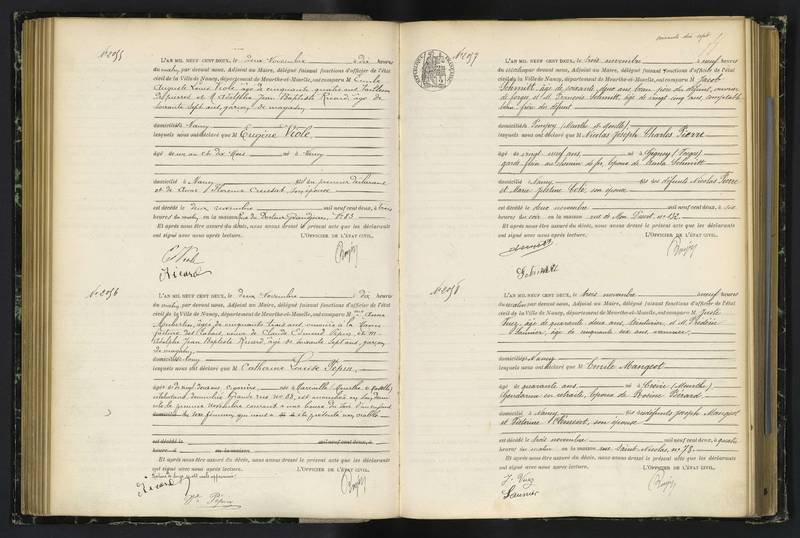 N° 2055
L'AN MIL NEUF CENT DEUX, le deux Novembre à dix heures
du matin, par devant nous, Adjoint au Maire, délégué faisant fonctions d'officier de l'état
civil de la Ville de Nancy, département de Meurthe-et-Moselle, ont comparu M Emile
Auguste Louis Viole, âgé de cinquante
et M Adolphe Jean Baptiste Ricard, âgé de
soixante sept ans, garçon de magasin
domiciliés à Nancy
lesquels nous ont déclaré que M Eugène Viole,
âgé de un an et dix mois né à Nancy
domicilié à Nancy fils du premier déclarant
et de Florence son épouse
est décédé le deux novembre mil neuf cent deux, à trois
heures du matin, en la maison rue du N° 83
Et après nous être assuré du décès, nous avons dressé le présent acte que les déclarants
ont signé avec nous après lecture. L'OFFICIER DE L'ÉTAT CIVIL,
Ricard
N° 2056
L'AN MIL NEUF CENT DEUX, le deux Novembre à dix heures
du matin, par devant nous, Adjoint au Maire, délégué faisant fonctions d'officier de l'état
civil de la Ville de Nancy, département de Meurthe-et-Moselle, ont comparu M Anna
âgée de cinquante trois ans, ouvrière à la Manu
facture des tabacs, veuve de Claude Edmond Pépin, et M
Adolphe Jean Baptiste Ricard, âgé de soixante sept ans, garçon
de magasin
domiciliés à Nancy
lesquels nous ont déclaré que M Catherine Louise Pépin,
âgée de vingt deux ans, née à (Meurthe et Moselle)
célibataire, domiciliée Grande rue N° 83, est accouchée en son domi
cile le premier novembre courant à une heure du soir d'un enfant
féminin, qui nous a été présenté non viable
est décédé le mil neuf cent deux, à
heures d en la maison
Et après nous être assuré du décès, nous avons dressé le présent acte que les déclarants
ont signé avec nous après lecture. L'OFFICIER DE L'ÉTAT CIVIL,
Ricard
Pépin
N° 2057
L'AN MIL NEUF CENT DEUX, le trois novembre à neuf heures
du matin, par devant nous, Adjoint au Maire, délégué faisant fonctions d'officier de l'état
civil de la Ville de Nancy, département de Meurthe-et-Moselle, ont comparu M Jacob
Schmitt, âgé de soixante ans, beau-père du défunt, ouvrier
de forges et M François Schmitt, âgé de vingt cinq ans, comptable
beau frère du défunt
domiciliés à Pompey (Meurthe et Moselle)
lesquels nous ont déclaré que M Nicolas Joseph Charles Pierre
âgé de vingt neuf ans né à (Vosges)
garde frein au chemin de fer, époux de Schmitt
domicilié à Nancy fils des défunts Nicolas Pierre
et Marie son épouse
est décédé le deux novembre mil neuf cent deux, à six
heures du soir en la maison rue de Mon Désert, N° 132
Et après nous être assuré du décès, nous avons dressé le présent acte que les déclarants
ont signé avec nous après lecture. L'OFFICIER DE L'ÉTAT CIVIL,
N° 2058
L'AN MIL NEUF CENT DEUX, le trois novembre à neuf heures
du matin, par devant nous, Adjoint au Maire, délégué faisant fonctions d'officier de l'état
civil de la Ville de Nancy, département de Meurthe-et-Moselle, ont comparu M Juste
âgé de quarante deux ans, et M Frédéric
Launier, âgé de cinquante six ans, vannier
domiciliés à Nancy
lesquels nous ont déclaré que M Emile Mangeot
âgé de quarante ans né à (Meurthe)
Gendarme en retraite, époux de Rosine Pérard
domicilié à Nancy fils des défunts Joseph Mangeot
et son épouse
est décédé le trois novembre mil neuf cent deux, à quatre
heures du matin en la maison rue Saint Nicolas, N° 78
Et après nous être assuré du décès, nous avons dressé le présent acte que les déclarants
ont signé avec nous après lecture. L'OFFICIER DE L'ÉTAT CIVIL,
Launier